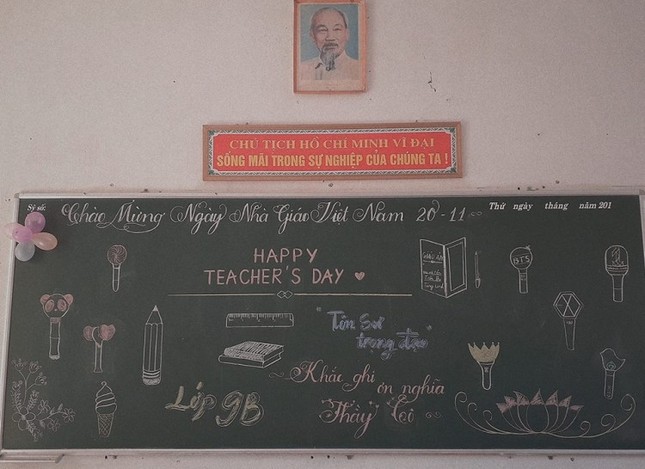 CHỦ TỊCH HỒ CHÍ MINH VĨ ĐẠI
SỐNG MÃI TRONG SỰ NGHIỆP CỦA CHÚNG TA !
Sỹ số:
Chào Mừng Ngày Nhà Giáo Việt Nam 20 - 11
Thứ ngày tháng năm 201
HAPPY
TEACHER'S DAY
BTS
"Tôn Sư
trọng đạo"
Khắc ghi ơn nghĩa
Thầy Cô
Lớp 9B